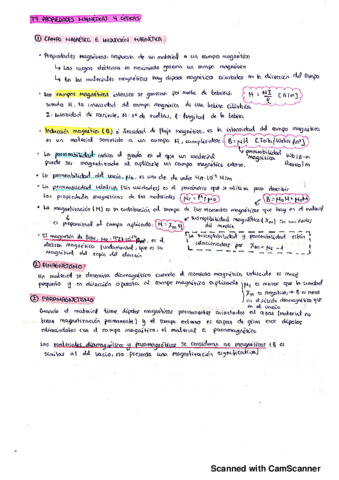 T7. PROPIEDADES MAGNÉTICAS Y ÓPTICAS
① CAMPO MAGNÉTICO E INDUCCIÓN MAGNÉTICA
• Propiedades magnéticas: respuesta de un material a un campo magnético
↳ Las cargas eléctricas en movimiento generan un campo magnético
↳ En los materiales magnéticos hay dipolos magnéticos orientados en la dirección del campo
• Los campos magnéticos intensos se generan por medio de bobinas H = NI/l [A/m]
siendo H, la intensidad del campo magnético de una bobina cilíndrica
I: intensidad de corriente, N: nº de vueltas, l: longitud de la bobina
• Inducción magnética (B) o densidad de flujo magnético, es la intensidad del campo magnético
en un material sometido a un campo H, cumpliéndose: B = μH [Tesla/Weber/m²]
↳ permeabilidad magnética
• La permeabilidad indica el grado en el que un material
puede ser magnetizado al aplicarle un campo magnético externo.
• La permeabilidad del vacío, μ₀, es una cte. de valor 4π·10⁻⁷ H/m
• La permeabilidad relativa (sin unidades) es el parámetro que se utiliza para describir
las propiedades magnéticas de los materiales μr = μ/μ₀ B = μ₀H + μ₀M
• La magnetización (M) es la contribución al campo de los momentos magnéticos que hay en el material
es proporcional al campo aplicado: M = χm H
↳ susceptibilidad magnética (χm) sin unidades
del medio
• El magnetón de Bohr, es el
momento magnético fundamental, que es la
magnitud del espín del electrón
* La susceptibilidad y permeabilidad están
relacionadas por χm = μr - 1
② DIAMAGNETISMO
Un material se denomina diamagnético cuando el momento magnético inducido es muy
pequeño y en dirección opuesta al campo magnético aplicado
μr es menor que la unidad
χm es negativa → B es menor
en el sólido diamagnético que
en el vacío
③ PARAMAGNETISMO
Cuando el material tiene dipolos magnéticos permanentes orientados al azar (material no
tiene magnetización permanente) y el campo externo es capaz de girar esos dipolos
alineándolos con el campo magnético; el material es paramagnético
Los materiales diamagnéticos y paramagnéticos se consideran no magnéticos (B es
similar al del vacío, no presenta una magnetización significativa)
Scanned with CamScanner